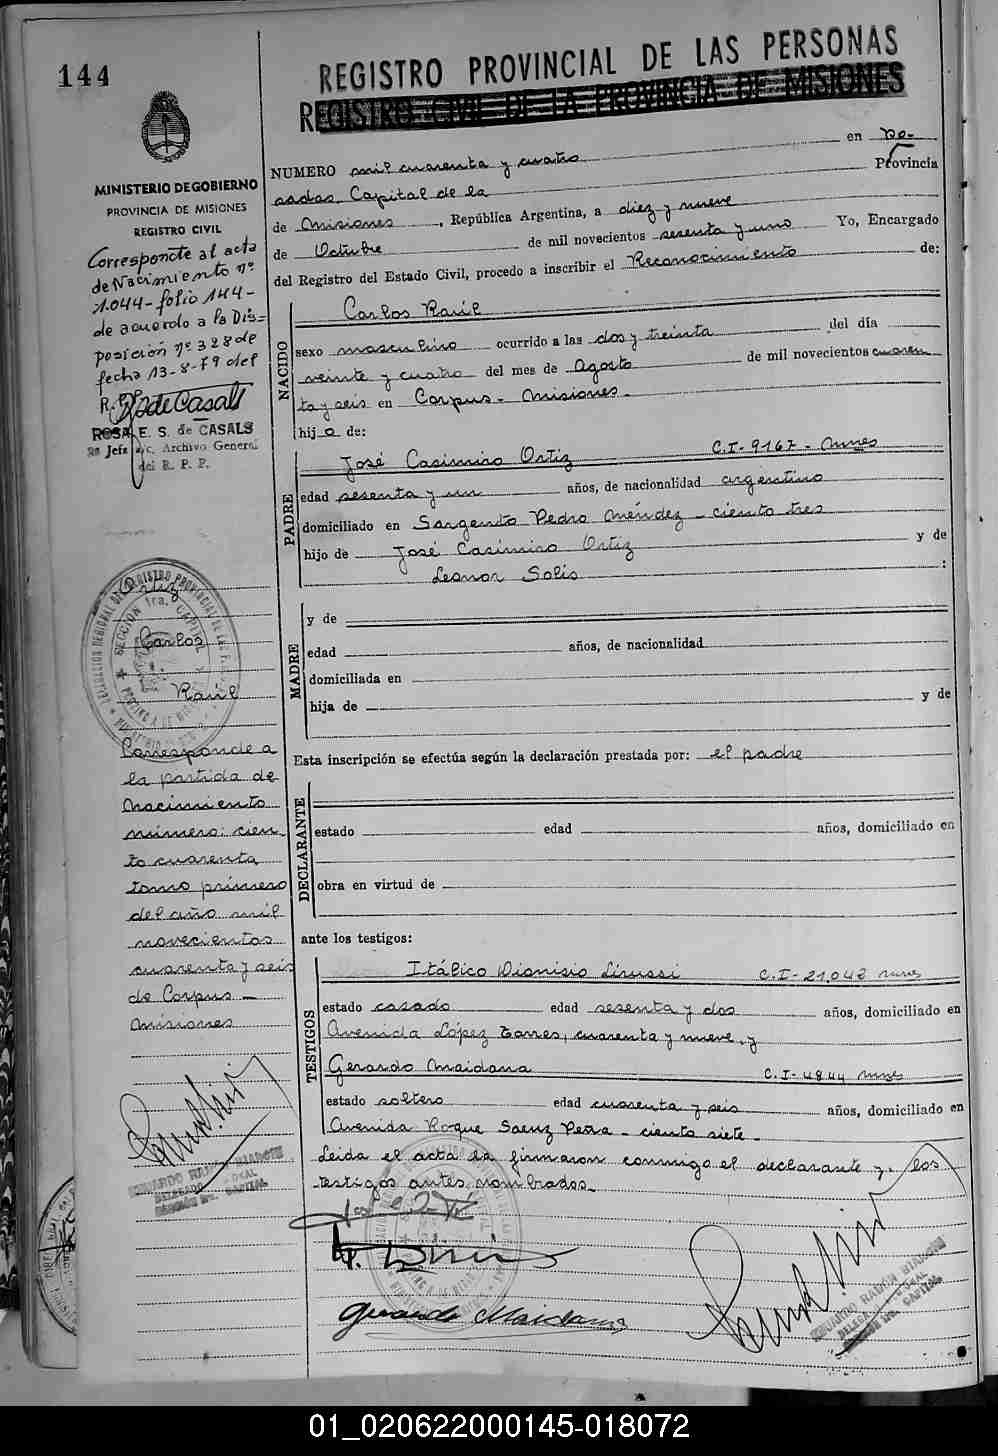 144
REGISTRO PROVINCIAL DE LAS PERSONAS
REGISTRO CIVIL DE LA PROVINCIA DE MISIONES
MINISTERIO DE GOBIERNO
PROVINCIA DE MISIONES
REGISTRO CIVIL
Corresponde al acta
de Nacimiento nº
1.044 - folio 144 -
de acuerdo a la Dis=
posición nº 328 de
fecha 13-8-79 del
R.P.P.
ROSA E. S. de CASALS
Jefe a/c. Archivo General
del R. P. P.
NUMERO mil cuarenta y cuatro en Po-
sadas, Capital de la Provincia
de Misiones, República Argentina, a diez y nueve
de Octubre de mil novecientos sesenta y uno Yo, Encargado
del Registro del Estado Civil, procedo a inscribir el Reconocimiento de:
NACIDO
Carlos Raúl
sexo masculino ocurrido a las dos y treinta del día
veinte y cuatro del mes de Agosto de mil novecientos cuaren
ta y seis en Corpus - Misiones -
hijo de:
PADRE
José Casimiro Ortiz C.I - 9167 - mnes
edad sesenta y un años, de nacionalidad argentino
domiciliado en Sargento Pedro Méndez - ciento tres
hijo de José Casimiro Ortiz y de
Leonor Solis :
MADRE
y de
edad años, de nacionalidad
domiciliada en
hija de y de
Esta inscripción se efectúa según la declaración prestada por: el padre
DECLARANTE
estado edad años, domiciliado en
obra en virtud de
ante los testigos:
TESTIGOS
Itálico Dionisio Lirussi C.I - 21,048 mnes
estado casado edad sesenta y dos años, domiciliado en
Avenida López Torres, cuarenta y nueve, y
Gerardo Maidana C.I - 4844 mnes
estado soltero edad cuarenta y seis años, domiciliado en
Avenida Roque Saenz Peña - ciento siete -
Leida el acta la firmaron conmigo el declarante y los
testigos antes nombrados -
Gerardo Maidana
EDUARDO RAMON BIANCHI
DELEGADO
CAPITAL
Ortiz
Carlos
Raúl
Corresponde a
la partida de
nacimiento
número: cien
to cuarenta
tomo primero
del año mil
novecientos
cuarenta y seis
de Corpus -
Misiones
EDUARDO RAMON BIANCHI
DELEGADO
CAPITAL
01_020622000145-018072